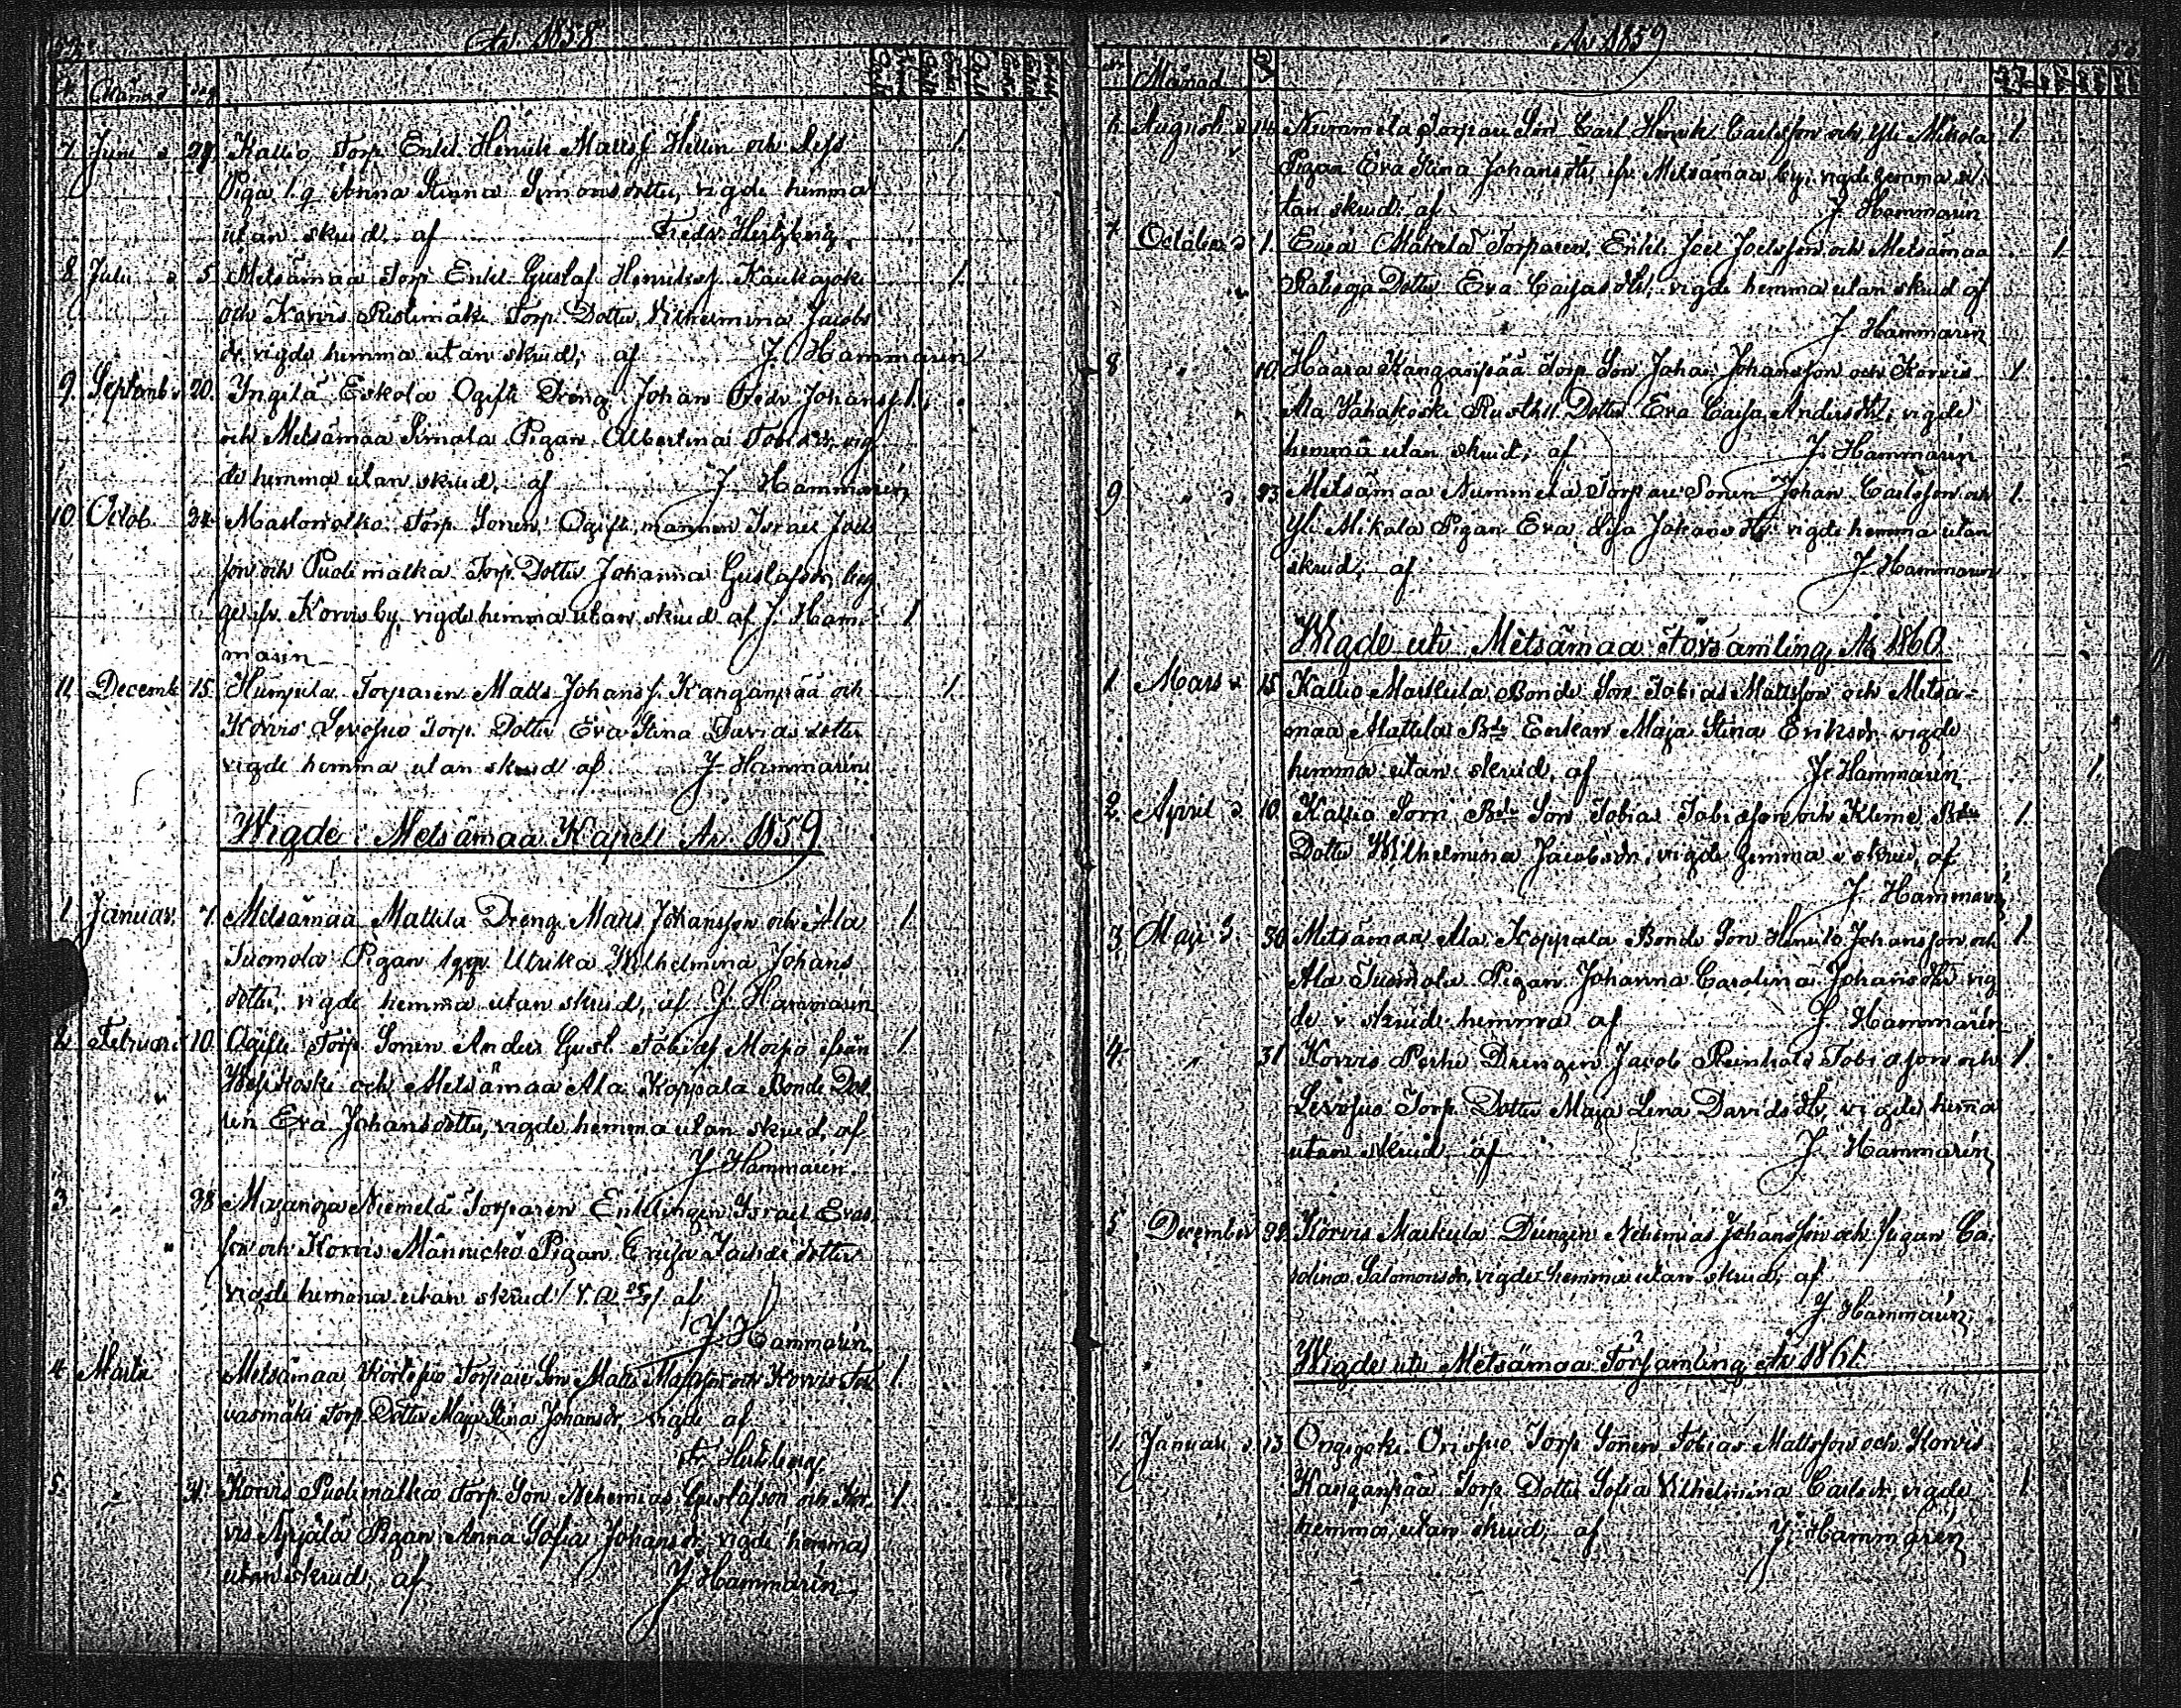 År 1858
Månad Dag
7 Juni 29 Kallio Torp. Enkl. Henrik Mattsf Hellin och Lejs
Piga l.q. Anna Stina Simonsdotter, vigde hemma
utan skrud, af Fredr. Hertzberg
8 Julii 5 Metsämaa Torp Enkl. Gustaf Henriksf. Kaukajoki
och Korvis Ristimäki Torp. Dotter Vilhelmina Jacobs
dr. vigde hemma utan skrud, af J. Hammarin 1.
9. Septemb. 20. Yngilä Eskola Ogifte Dreng Johan Fredr Johansf. 1.
och Metsämaa Simola Pigan Albertina Tobiasdr. vig
de hemma utan skrud, af J Hammarin
10 Octob. 24 Torp. Sonen Ogift mannen Israel Joels
son och Puolimatka Torp. Dotter Johanna Gustafsdr, beg
ge fr. Korvis by, vigde hemma utan skrud af J. Ham- 1
marin
11 Decemb. 15 Humpila Torparen Matts Johansf. Kanganpää och 1.
Korvis Levosuo Torp. Dotter Eva Stina Davidsdotter
vigde hemma utan skrud af J Hammarin
Wigde i Metsämaa Kapell År 1859
1 Januar. 7 Metsämaa Mattila Dreng Matts Johansson och Ala 1.
Tuomola Pigan Ulrika Wilhelmina Johans
dotter, vigde hemma utan skrud, af J. Hammarin
2 Februari 10. Ogifte Torp. Sonen Anders Gust. Tobiasf Morso ifrån 1
och Metsämaa Ala Koppala Bonde Dot
ten Eva Johansdotter, vigde hemma utan skrud, af
J Hammarin
3 " 28 Niemelä Torparen Enklingen Israel
son och Korvis Männickö Pigan dotter
vigde hemma utan skrud af
J. Hammarin
4 Martii Metsämaa Torpare Son Matts Mattsson och Korvis Tor 1.
vasmäki Torp. Dotter Maja Stina Johansdr, vigde af
Fr. Hertzberg
5. " 31. Korvis Puolimatka Torp. Son Nehemias Gustafsson och Kor 1.
vis Pigan Anna Sofia Johansdr, vigde hemma
utan skrud, af J Hammarin
År 1859
Månad
6 Augusti 14 Nummela Torpare Son Carl Henrik Carlsson och Yli Mikola 1.
Pigan Eva Stina Johansdtr, ifr. Metsämaa by, vigde hemma u
tan skrud, af J. Hammarin
7 October 1. Eura Mäkelä Torparen, Enkl. Joel Joelsson och Metsämaa 1.
Dotter Eva Caisasdtr, vigde hemma utan skrud af
J. Hammarin
8 " 10 Haara Kanganpää Torp. Son Johan Johansson och Korvis 1.
Ala Jahakoski Rusthll. Dotter Eva Caisa Andersdtr, vigde
hemma utan skrud, af J. Hammarin
9 " 23 Metsämaa Nummela Torpare Sonen Johan Carlsson och 1.
Yli Mikola Pigan Eva Lisa Johansdtr vigde hemma utan
skrud, af J. Hammarin
Wigde uti Metsämaa Församling År 1860
1. Mars 15 Kallio Markula Bonde Son Tobias Mattsson och Metsä-
maa Mattila Bde Enkan Maja Stina Eriksdr. vigde
hemma utan skrud, af J. Hammarin 1.
2. April 10. Kallio Sorri Bde Son Tobias Tobiasson och Kleme Bde 1.
Dotter Wilhelmina Jacobsdr, vigde hemma u. skrud, af
J. Hammarin
3. Maji 30 Metsämaa Ala Koppala Bonde Son Henrik Johansson och 1.
Ala Tuomola Pigan Johanna Carolina Johansdtr vig
de u skrud hemma af J. Hammarin
4. " 31 Korvis Perhe Drengen Jacob Reinhold Tobiasson och 1.
Levosuo Torp. Dotter Maja Lena Davidsdtr, vigde hema
utan skrud, af J. Hammarin
5 December 29. Korvis Markula Drengen Nehemias Johansson och Pigan Ca
rolina Salomonsdr, vigde hemma utan skrud, af
J. Hammarin
Wigde uti Metsämaa Församling År 1861.
1. Januari 13 Orisuo Torp. Sonen Tobias Mattsson och Korvis
Kanganpää Torp. Dotter Sofia Vilhelmina Carlsdr, vigde 1.
hemma, utan skrud, af J. Hammarin